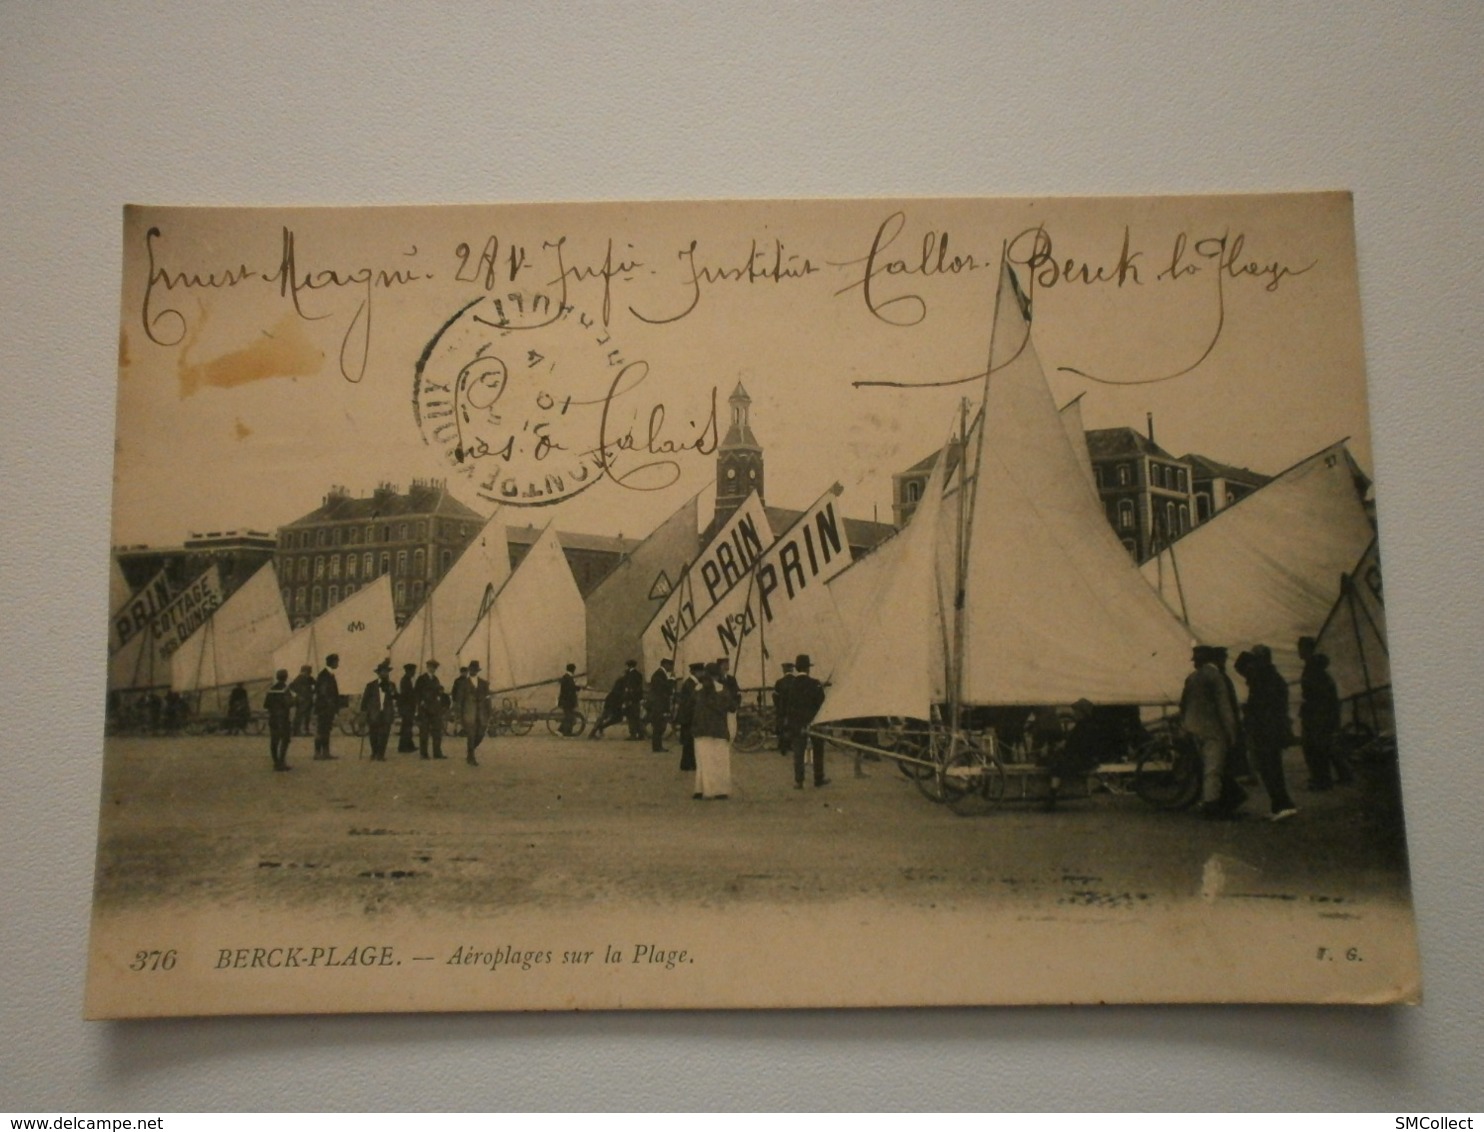 Ernest Magné. 28 V. Infie. Institut Callot. Berck la Plage
Pas. de Calais
MONTDEVERGUX
PRIN
COTTAGE
DES DUNES
PRIN
N° 17
PRIN
N° 21
27
376 BERCK-PLAGE. — Aéroplages sur la Plage. T. G.
SMCollect